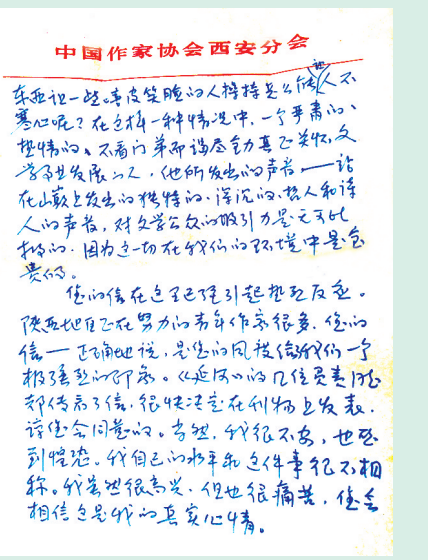 中国作家协会西安分会
东西让一些嬉皮笑脸的人挥持怎么能让人不
寒心呢?在这样一种情况中,一个严肃的、
热情的、不看门第而竭尽全力真正关怀文
学事业发展的人,他所发出的声音——站
在山巅上发出的独特的、深沉的哲人和诗
人的声音,对文学公众的吸引力是无可比
拟的。因为这一切在我们的环境中是宝
贵的。
您的信在这里已经引起热烈反应。
陕西地区正在努力的青年作家很多,您的
信——正确地说,是您的风度给我们一个
极强烈的印象。《延河》的几位负责同志
都传看了信,很快决定在刊物上发表,
谅您会同意的。当然,我很不安,也感
到惶恐。我自己的水平和这件事很不相
称。我虽然很高兴,但也很痛苦,您会
相信这是我的真实心情。